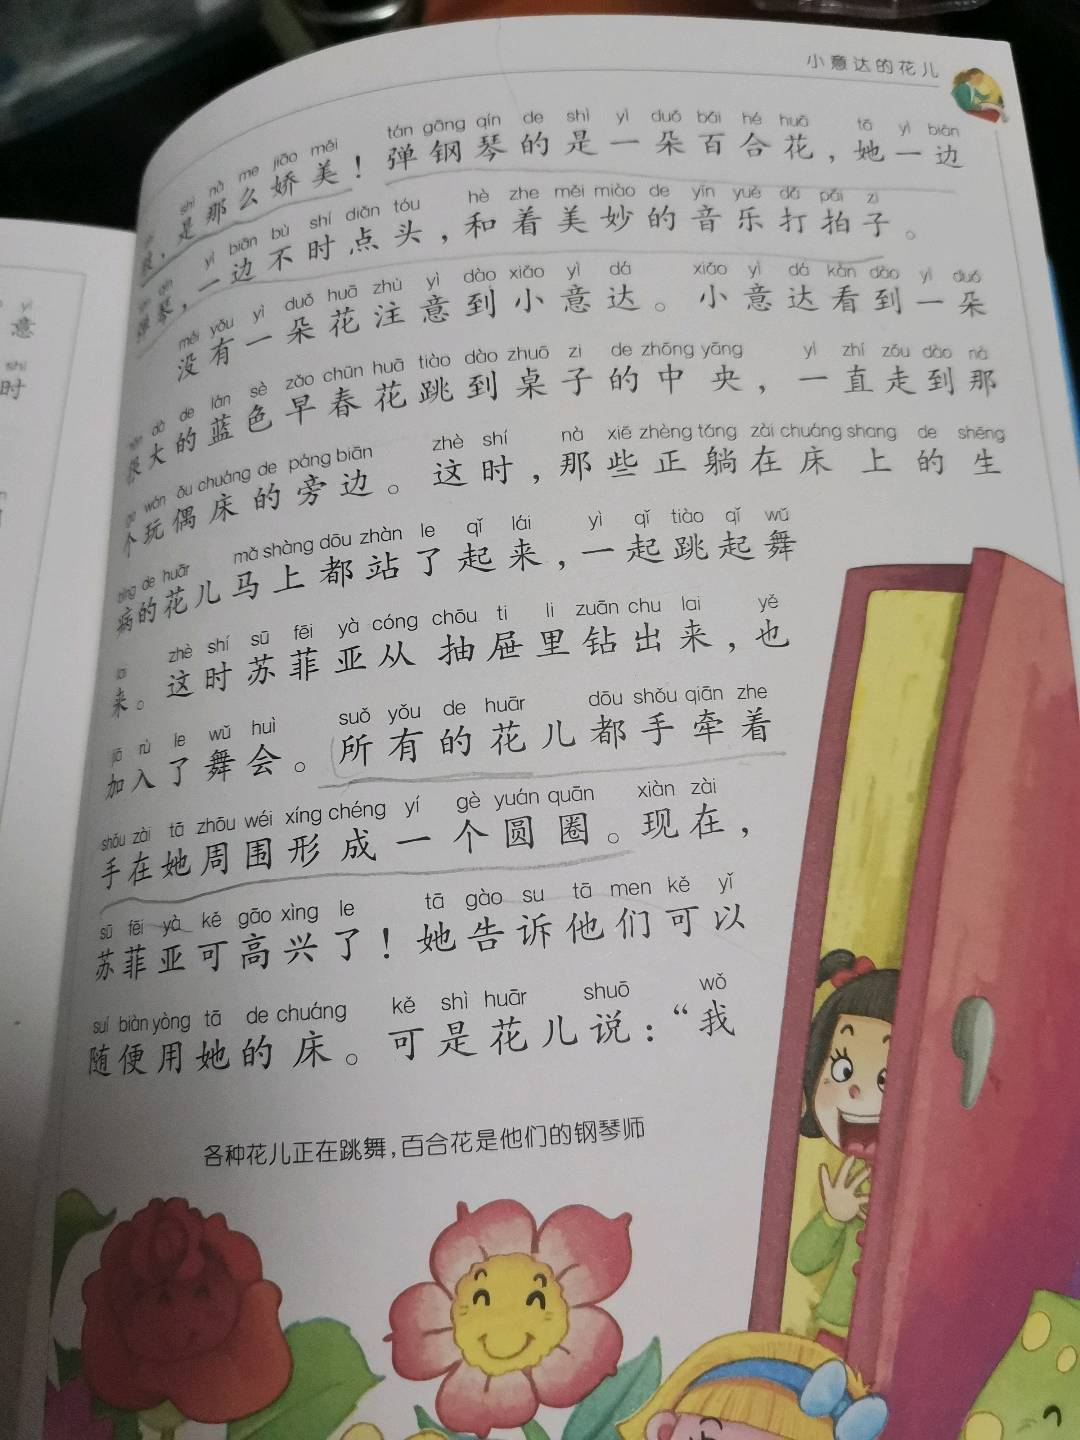 小意达的花儿
shì nà me jiāo měi tán gāng qín de shì yì duǒ bǎi hé huā tā yì biān
,是那么娇美!弹钢琴的是一朵百合花,她一边
tán qín yì biān bù shí diǎn tóu hè zhe měi miào de yīn yuè dǎ pāi zi
弹琴,一边不时点头,和着美妙的音乐打拍子。
méi yǒu yì duǒ huā zhù yì dào xiǎo yì dá xiǎo yì dá kàn dào yì duǒ
没有一朵花注意到小意达。小意达看到一朵
hěn dà de lán sè zǎo chūn huā tiào dào zhuō zi de zhōng yāng yì zhí zǒu dào nà
很大的蓝色早春花跳到桌子的中央,一直走到那
ge wán ǒu chuáng de páng biān zhè shí nà xiē zhèng tǎng zài chuáng shang de shēng
个玩偶床的旁边。这时,那些正躺在床上的生
bìng de huār mǎ shàng dōu zhàn le qǐ lái yì qǐ tiào qǐ wǔ
病的花儿马上都站了起来,一起跳起舞
lai zhè shí sū fēi yà cóng chōu ti li zuān chu lai yě
来。这时苏菲亚从抽屉里钻出来,也
jiā rù le wǔ huì suǒ yǒu de huār dōu shǒu qiān zhe
加入了舞会。所有的花儿都手牵着
shǒu zài tā zhōu wéi xíng chéng yí gè yuán quān xiàn zài
手在她周围形成一个圆圈。现在,
sū fēi yà kě gāo xìng le tā gào su tā men kě yǐ
苏菲亚可高兴了!她告诉他们可以
suí biàn yòng tā de chuáng kě shì huār shuō wǒ
随便用她的床。可是花儿说:“我
各种花儿正在跳舞,百合花是他们的钢琴师